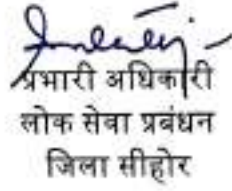 प्रभारी अधिकारी
लोक सेवा प्रबंधन
जिला सीहोर